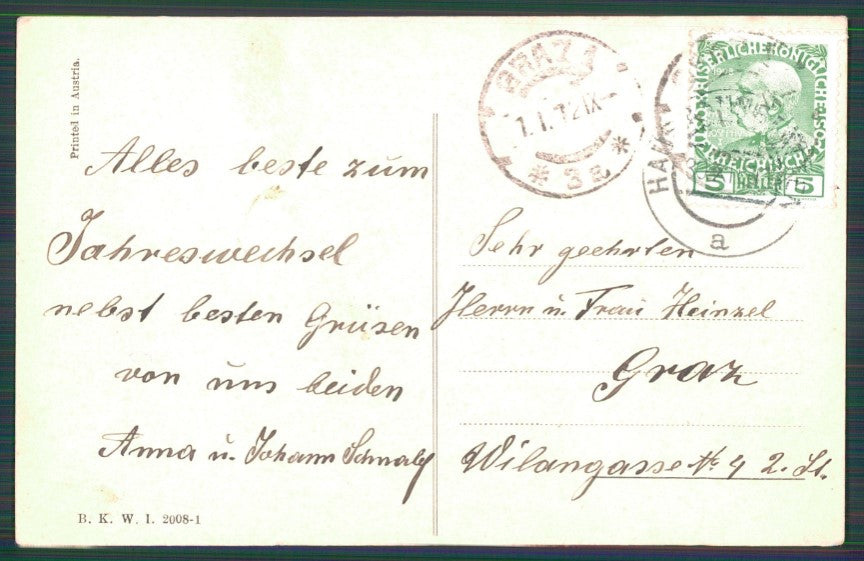 Printed in Austria.
Alles beste zum
Jahreswechsel
nebst besten Grüsen
von uns beiden
Anna u. Johann Schnabl
B. K. W. I. 2008-1
GRAZ 1
1.1.12 IX
* 3a *
KAISERLICHE KÖNIGLICHE
5 HELLER 5
a
Sehr geehrten
Herrn u. Frau Heinzel
Graz
Wilangasse № 4 2. St.